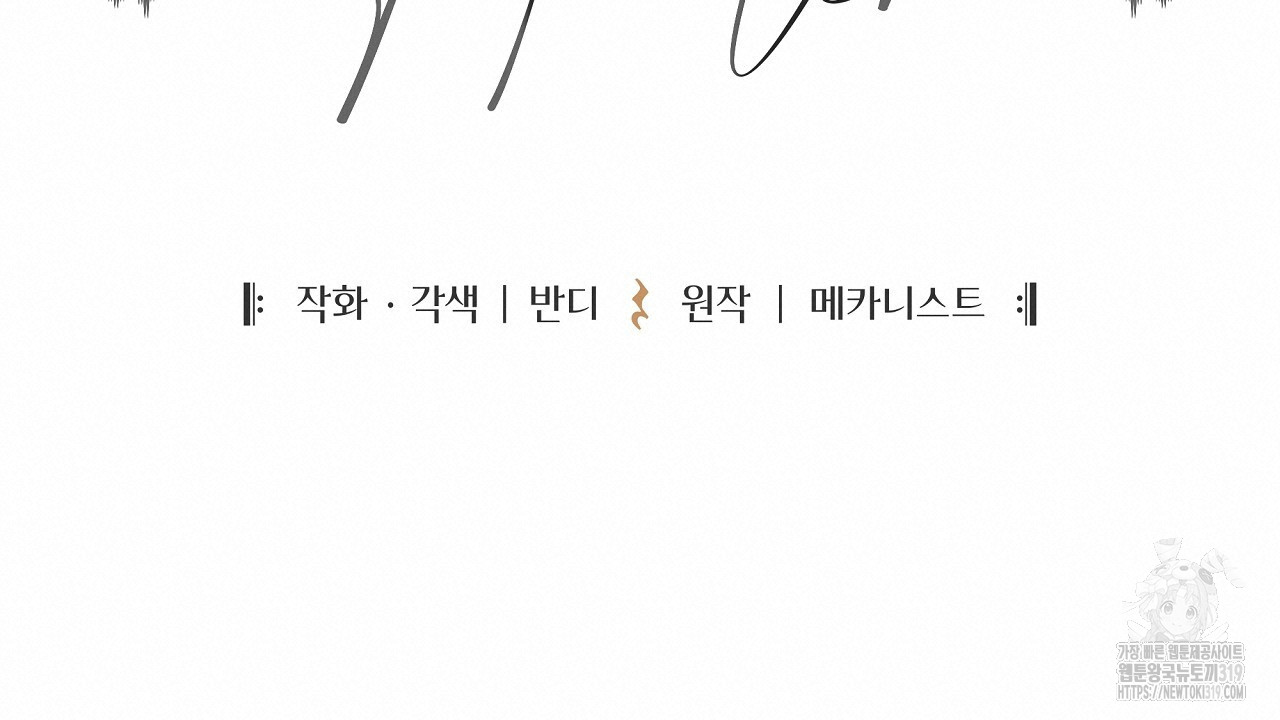 작화 · 각색 | 반디 원작 | 메카니스트
가장 빠른 웹툰제공사이트
웹툰왕국뉴토끼319
HTTPS://NEWTOKI319.COM